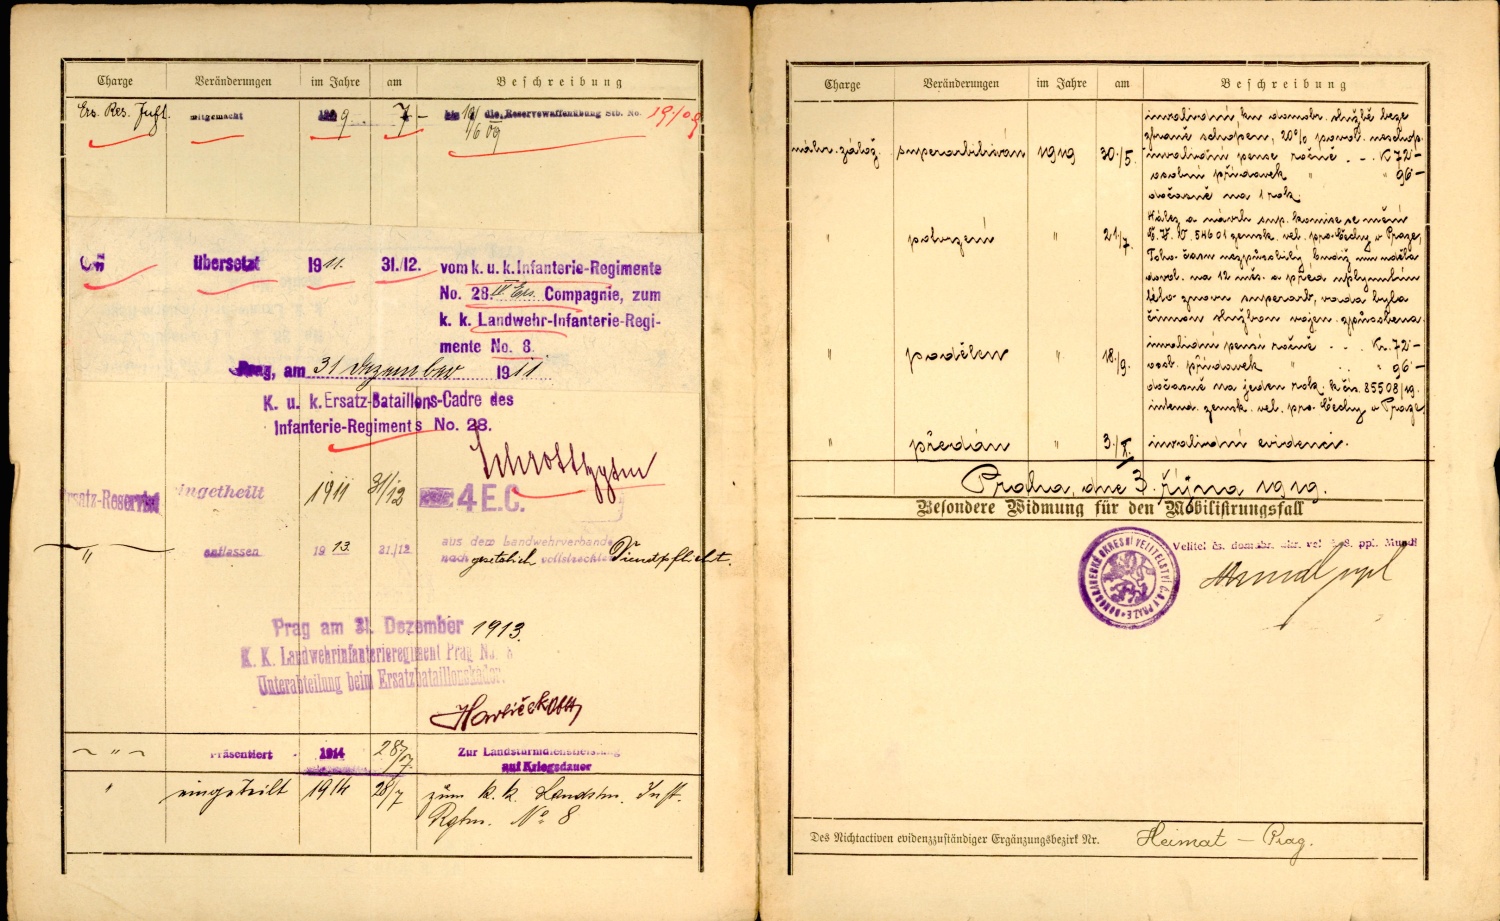 Charge Veränderungen im Jahre am Beschreibung
Ers. Res. Inft. mitgemacht 9 7 – bis 19/6 09 die Reservewaffenübung Stb. No. 19/09
übersetzt 1911. 31./12. vom k. u. k. Infanterie-Regimente
No. 28. IV Ers. Compagnie, zum
k. k. Landwehr-Infanterie-Regi-
mente No. 8.
Prag, am 31 Dezember 1911
K. u. k. Ersatz-Bataillons-Cadre des
Infanterie-Regiments No. 28.
Ersatz-Reservist eingetheilt 1911 31/12 4 E.C.
" entlassen 1913. 31/12. aus dem Landwehrverbande
nach gesetzlich vollstreckter Dienstpflicht.
Prag am 31. Dezember 1913.
K. K. Landwehrinfanterieregiment Prag No. 8
Unterabteilung beim Ersatzbataillonskader.
" Präsentiert 1914 28/7. Zur Landsturmdienstleistung
auf Kriegsdauer
" eingeteilt 1914 28/7 zum k. k. Landstm. Inft.
Rgtm. No 8
Charge Veränderungen im Jahre am Beschreibung
invalidní ku domobr. službě beze
zbraně schopen, 20% povol. neschop.
náhr. zálož. superarbitrován 1919 30./5. invalidní pense ročně . – . K 72·–
osobní přídavek " " 96·–
dočasně na 1 rok.
Nález a návrh sup. komise se mění
" potvrzení " 21/7. Č. J. V. 54601 zemsk. vel. pro Čechy v Praze,
Toho času nezpůsobilý budiž mu udělena
dovol. na 12 měs. a před uplynutím
této znovu superarb., vada byla
činnou službou vojen. způsobena.
" podělen " 18./9. invalidní pensí ročně . . . Kr. 72·–
osob. přídavek " . . " 96·–
dočasně na jeden rok. k čís. 85508/19.
intend. zemsk. vel. pro Čechy v Praze
" předán " 3./X. invalidní evidenci.
Praha, dne 3. října 1919.
Besondere Widmung für den Mobilisirungsfall
Velitel čs. domobr. okr. vel. č. 8. ppl. Mundl
Mundl ppl
Des Nichtactiven evidenzzuständiger Ergänzungsbezirk Nr. Heimat – Prag.